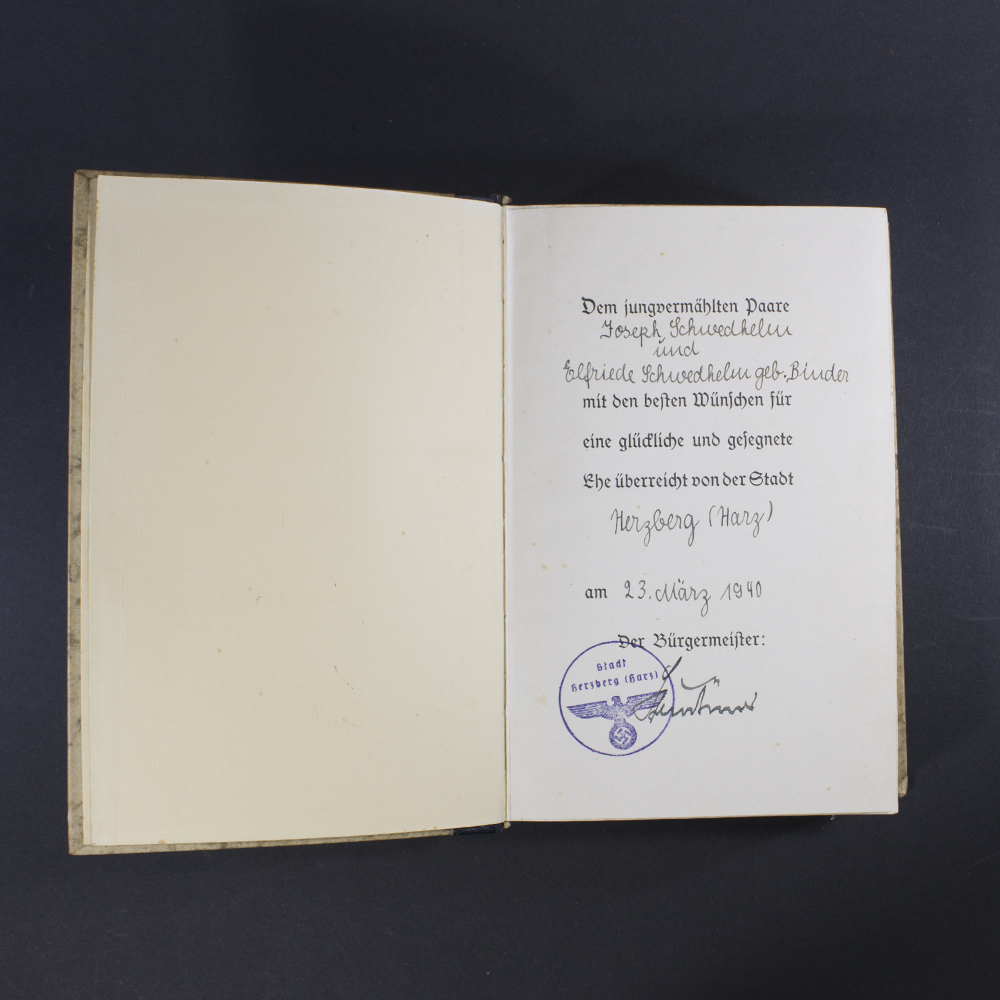 Dem jungvermählten Paare
Joseph Schwedhelm
und
Elfriede Schwedhelm geb. Binder
mit den besten Wünschen für
eine glückliche und gesegnete
Ehe überreicht von der Stadt
Herzberg (Harz)
am 23. März 1940
Der Bürgermeister:
Stadt
Herzberg (Harz)